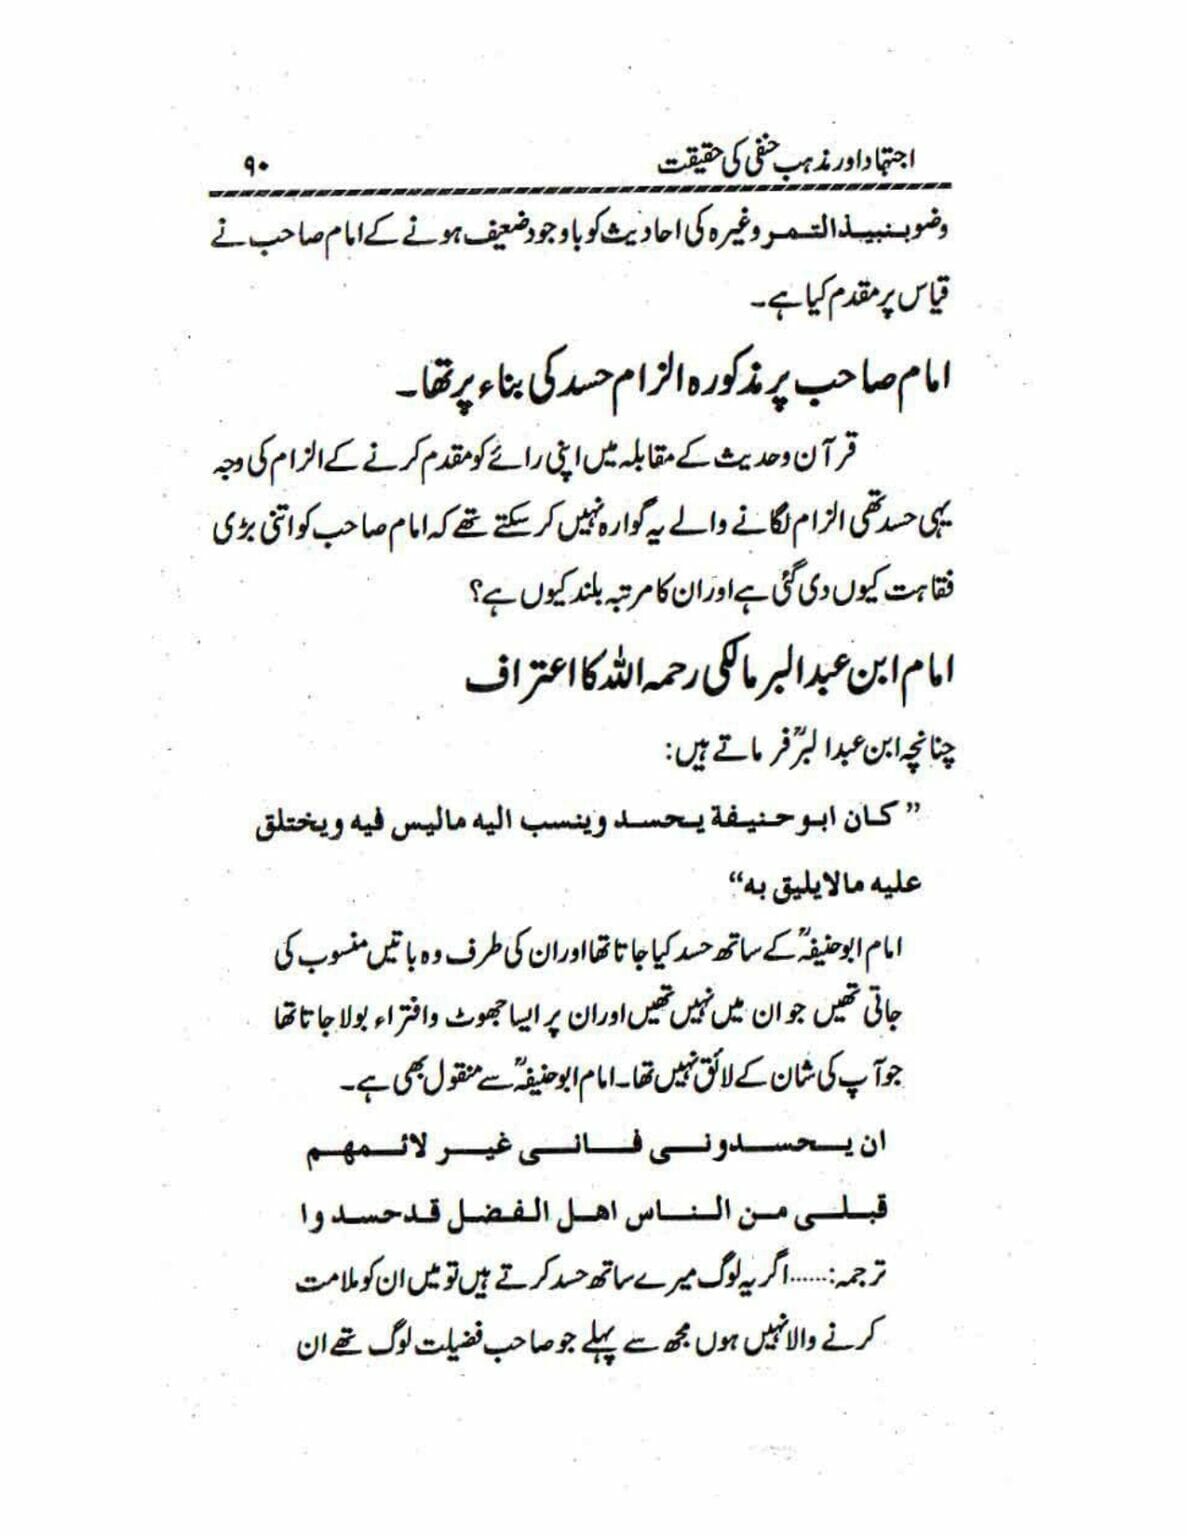 اجتہاد اور مذہب حنفی کی حقیقت ۹۰
وضو بنبیذ التمر وغیرہ کی احادیث کو باوجود ضعیف ہونے کے امام صاحب نے
قیاس پر مقدم کیا ہے۔
امام صاحب پر مذکورہ الزام حسد کی بناء پر تھا۔
قرآن وحدیث کے مقابلہ میں اپنی رائے کو مقدم کرنے کے الزام کی وجہ
یہی حسد تھی الزام لگانے والے یہ گوارہ نہیں کر سکتے تھے کہ امام صاحب کو اتنی بڑی
فقاہت کیوں دی گئی ہے اور ان کا مرتبہ بلند کیوں ہے؟
امام ابن عبدالبر مالکی رحمہ اللہ کا اعتراف
چنانچہ ابن عبدالبرؒ فرماتے ہیں:
”کان ابو حنیفة یحسد وینسب الیه مالیس فیه ویختلق
علیه مالایلیق به“
امام ابوحنیفہؒ کے ساتھ حسد کیا جاتا تھا اور ان کی طرف وہ باتیں منسوب کی
جاتی تھیں جو ان میں نہیں تھیں اور ان پر ایسا جھوٹ وافتراء بولا جاتا تھا
جو آپ کی شان کے لائق نہیں تھا۔ امام ابوحنیفہؒ سے منقول بھی ہے۔
ان یحسدونی فانی غیر لائمهم
قبلی من الناس اهل الفضل قد حسدوا
ترجمہ:......اگر یہ لوگ میرے ساتھ حسد کرتے ہیں تو میں ان کو ملامت
کرنے والا نہیں ہوں مجھ سے پہلے جو صاحب فضیلت لوگ تھے ان